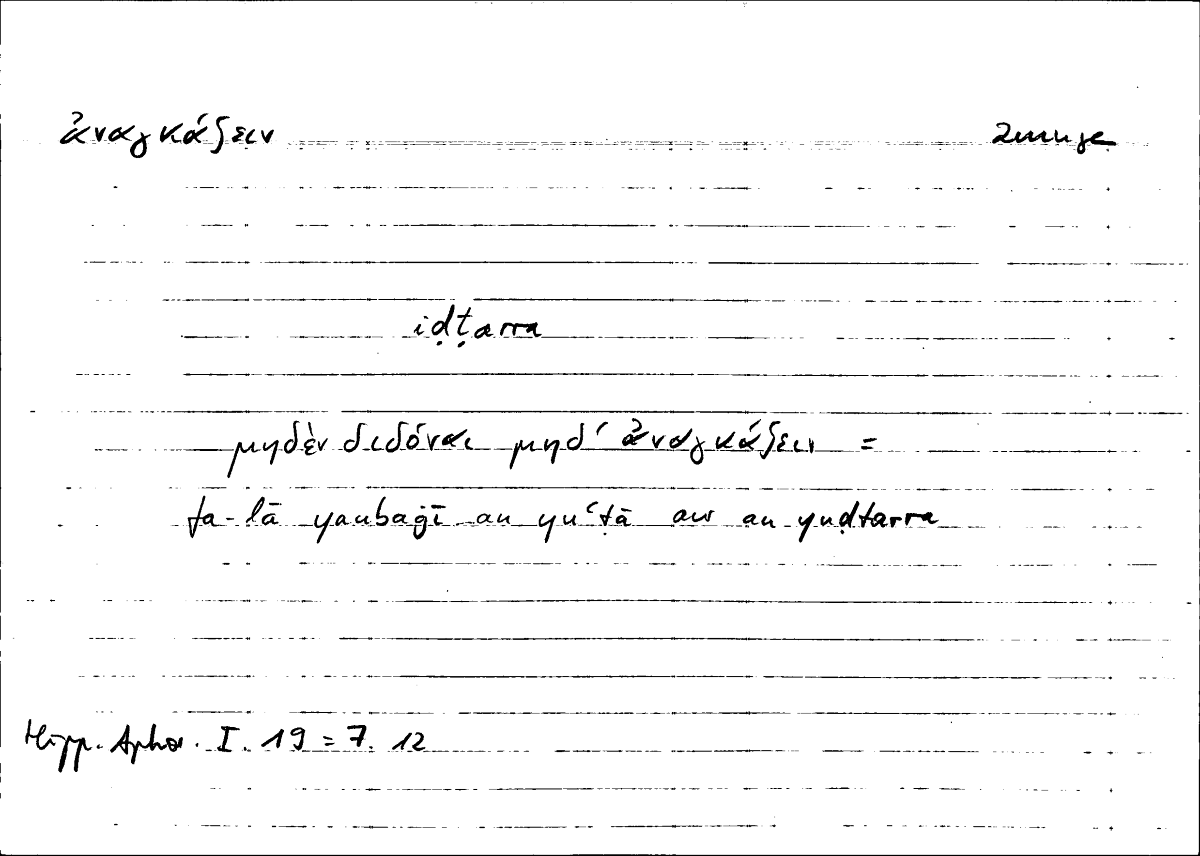 ἀναγκάζειν zwinge
iḍṭarra
μηδὲν διδόναι μηδ’ ἀναγκάζειν =
fa-lā yanbaġī an yuʿṭā aw an yuḍtarra
Hipp. Aphor. I. 19 = 7. 12